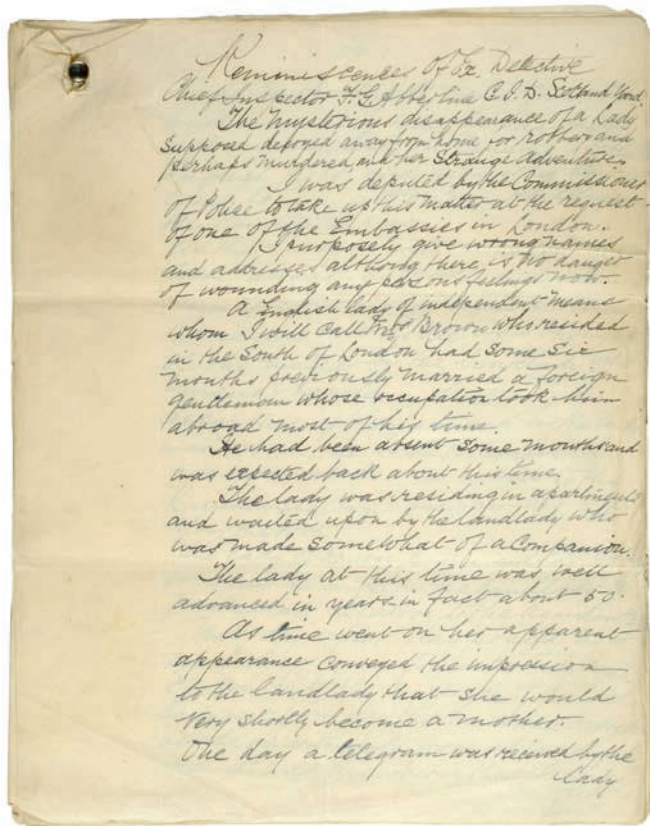 Reminiscences of Ex. Detective
Chief Inspector F. G. Abberline C. I. D. Scotland Yard.
The mysterious disappearance of a Lady
Supposed decoyed away from home for robbery and
perhaps murdered, and her Strange Adventure.
I was deputed by the Commissioner
of Police to take up this matter at the request
of one of the Embassies in London.
I purposely give wrong names
and addresses although there is no danger
of wounding any persons feelings now.
A English lady of independent means
whom I will call Mrs Brown who resided
in the South of London had some Six
months previously married a foreign
gentleman whose occupation took him
abroad most of his time.
He had been absent some months and
was expected back about this time.
The lady was residing in apartments
and waited upon by the landlady who
was made somewhat of a Companion.
The lady at this time was well
advanced in years in fact about 50.
As time went on her apparent
appearance conveyed the impression
to the landlady that she would
very shortly become a mother.
One day a telegram was received by the
Lady